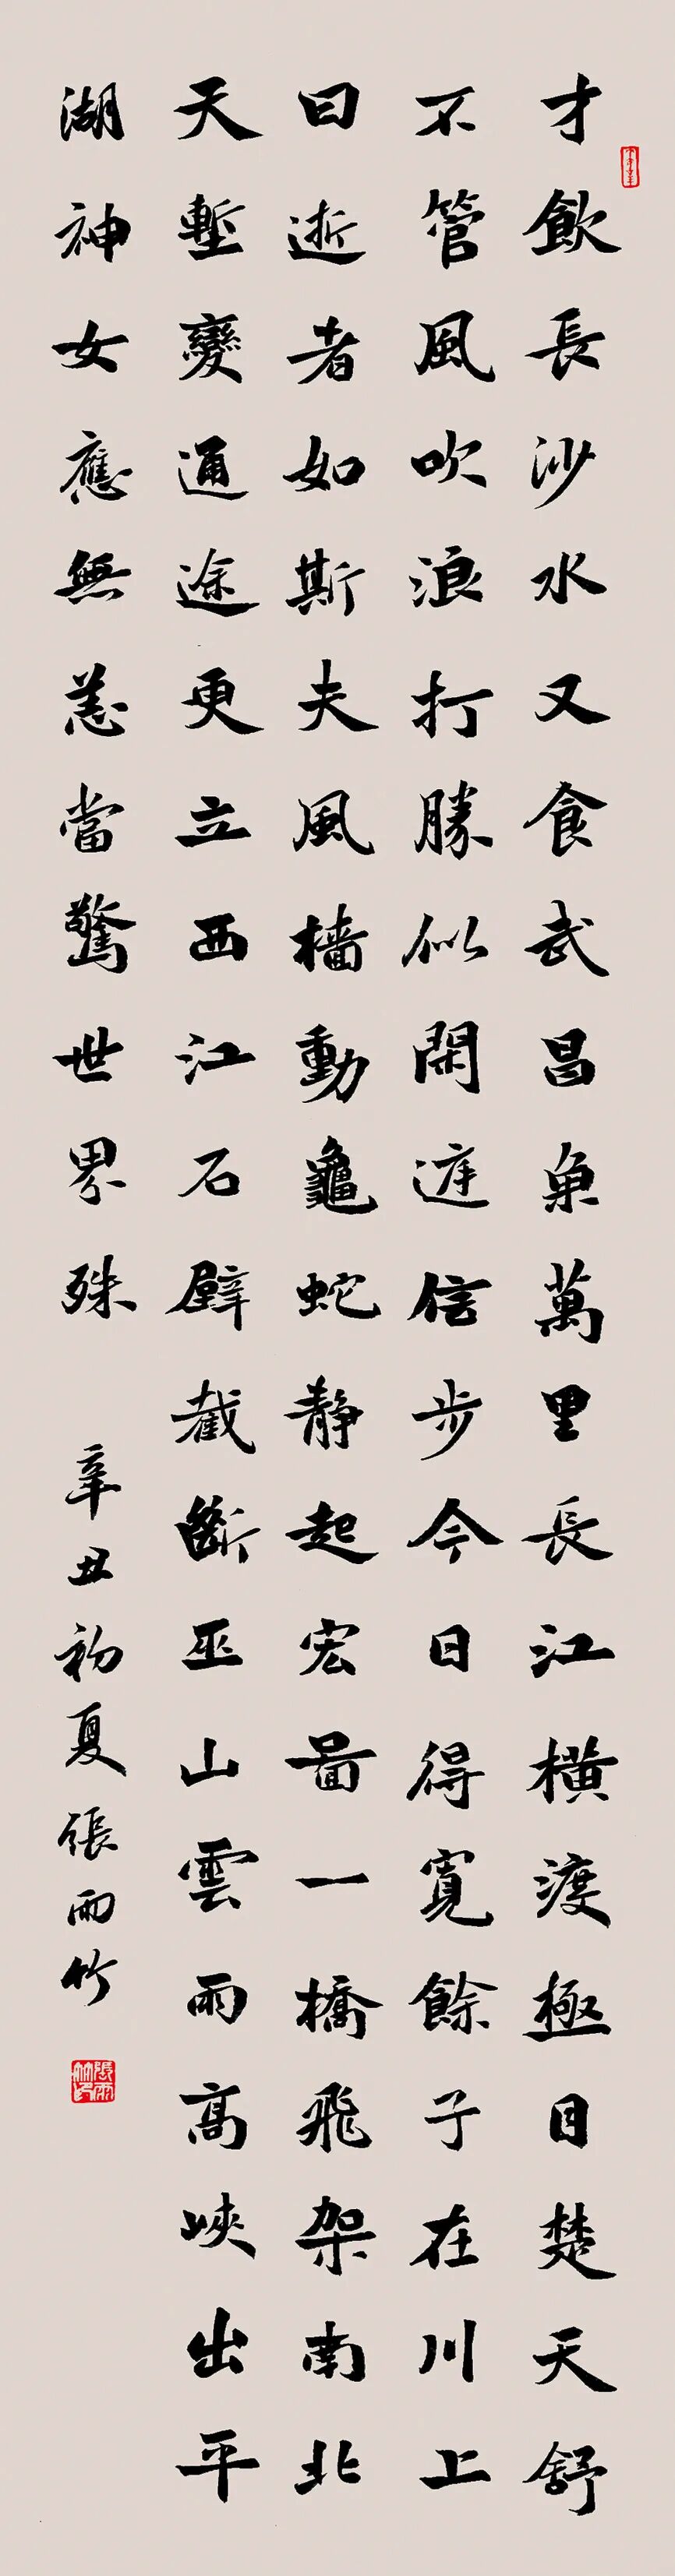 才飲長沙水又食武昌魚萬里長江橫渡極目楚天舒
不管風吹浪打勝似閑遊信步今日得寬餘子在川上
曰逝者如斯夫風檣動龜蛇靜起宏圖一橋飛架南北
天塹變通途更立西江石壁截斷巫山雲雨高峽出平
湖神女應無恙當驚世界殊
辛丑初夏張雨竹